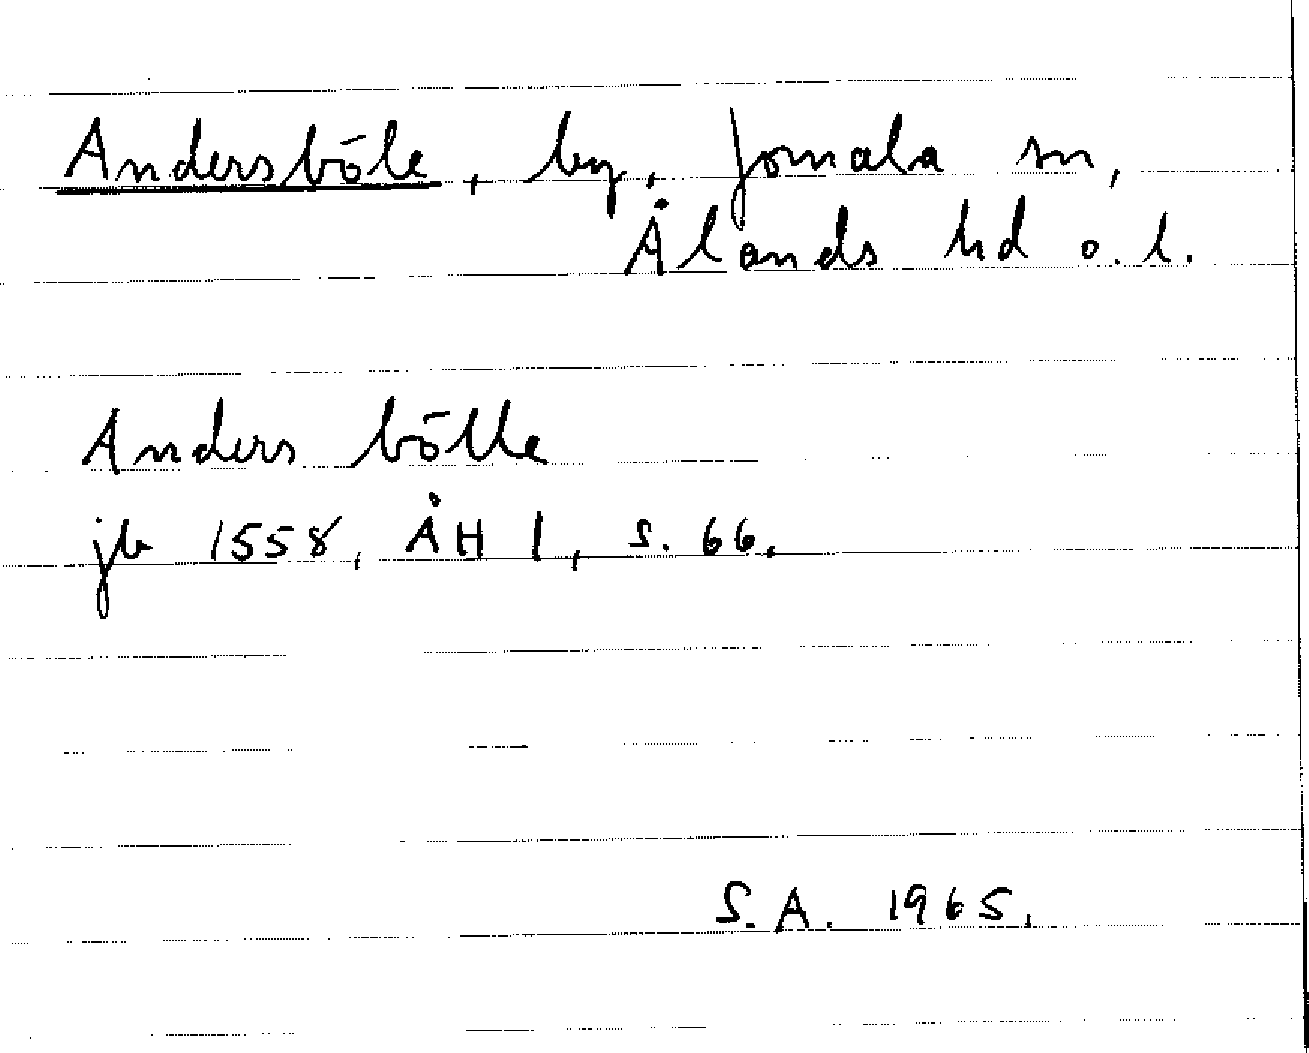 Andersböle, by, Jomala sn,
Ålands hd o. l.
Anders bölle
jb 1558, ÅH 1, s. 66.
S. A. 1965.